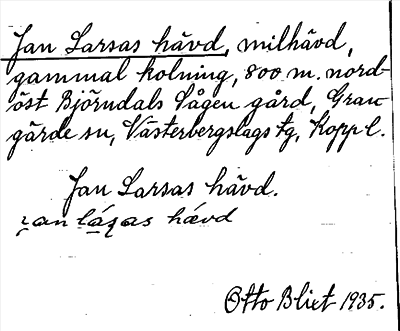 Jan Larsas hävd, milhävd,
gammal kolning, 800 m. nord-
öst Björndals Vågen gård, Gran-
gärde sn, Västerbergslags tg, Kopp l.
Jan Larsas hävd.
Otto Blixt 1935.